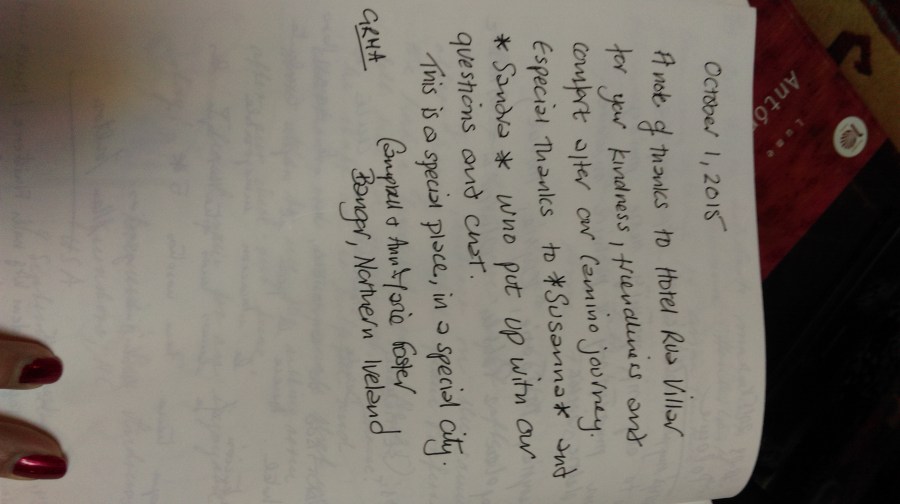 October 1, 2015
A note of thanks to Hotel Rua Villar
for your kindness, friendliness and
comfort after our Camino journey.
Especial thanks to *Susanna* and
*Sandra* who put up with our
questions and chat.
This is a special place, in a special city.
Campbell & Foster
Bangor, Northern Ireland
GRMA
Antón
Lope